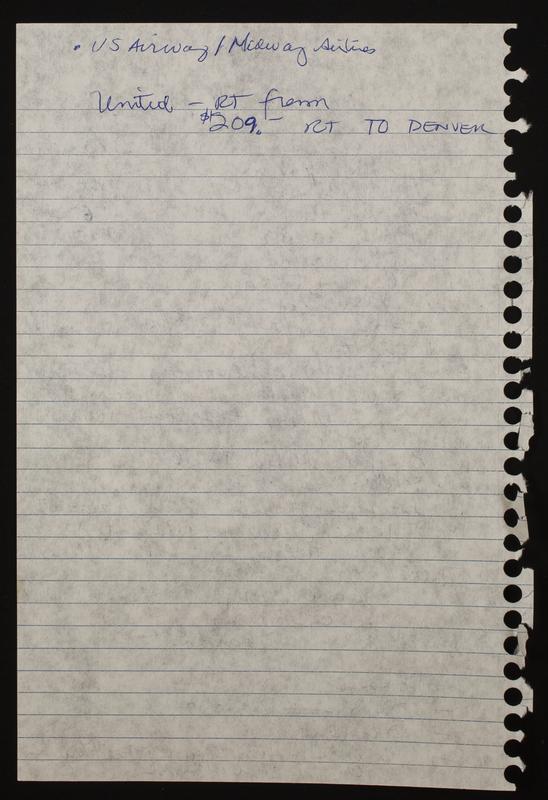 • US Airway / Midway Airlines
United – RT from
$209.– RT TO DENVER